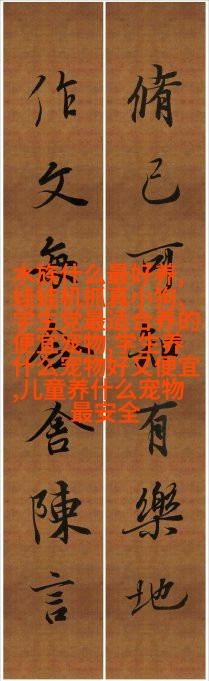 脩己可有樂地
作文無舍陳言
水族什么最好养,
娃娃机抓真小狗,
学生党最适合养的
便宜宠物,学生养
什么宠物好又便宜
,儿童养什么宠物
最安全